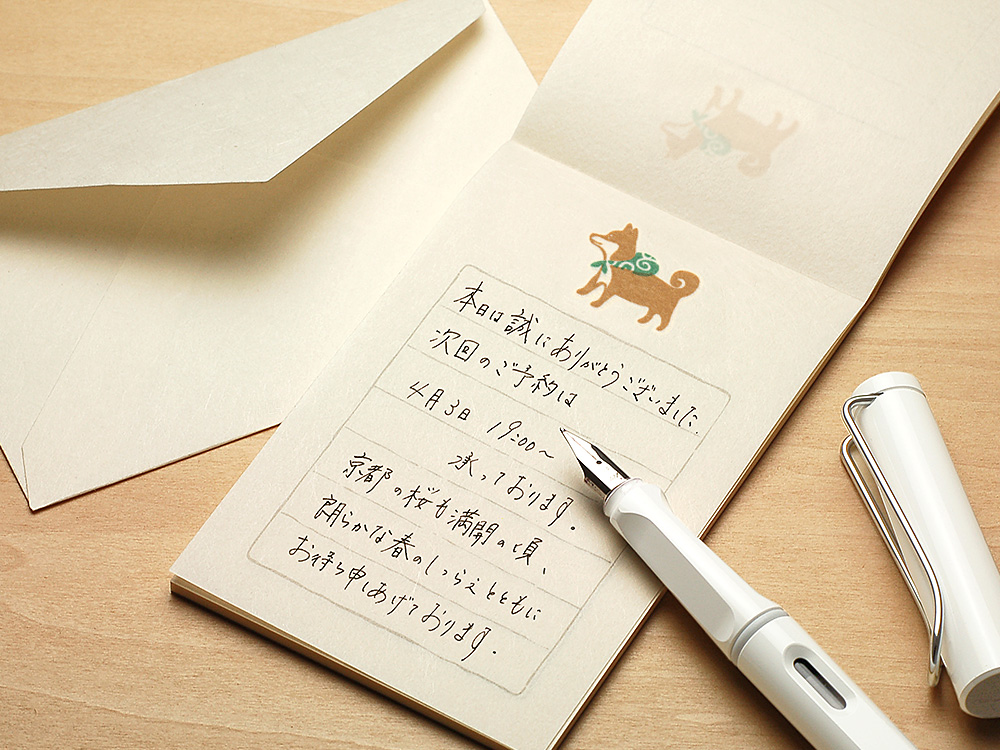 本日は誠にありがとうございました。
次回のご予約は
4月3日 19:00〜
承っております。
京都の桜も満開の頃、
朗らかな春のしつらえとともに
お待ち申しあげております。